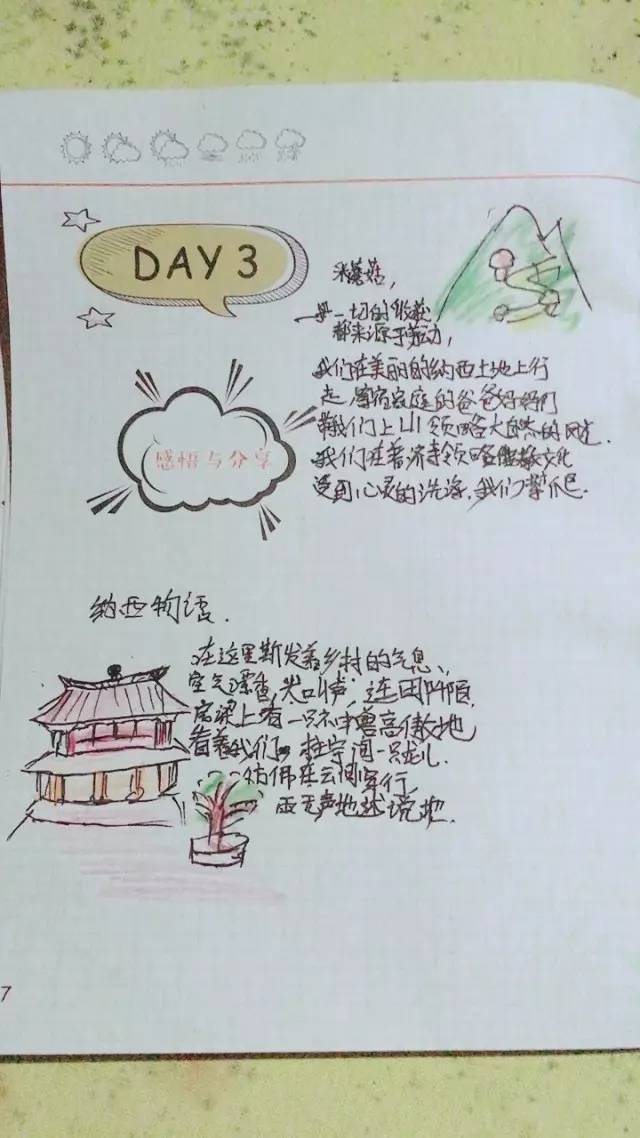 DAY 3
采蘑菇,
一切的收获
都来源于劳动,
我们在美丽的纳西土地上行
走,寄宿家庭的爸爸妈妈们
带我们上山领略大自然的风光.
我们在普济寺领略佛教文化
受到心灵的洗涤.我们攀爬
感悟与分享
纳西物语.
在这里散发着乡村的气息、
空气飘香,犬叫声,连田阡陌,
房梁上有一只神兽高傲地
看着我们,柱字间一只龙儿
仿佛在云间穿行,
无声地述说
7